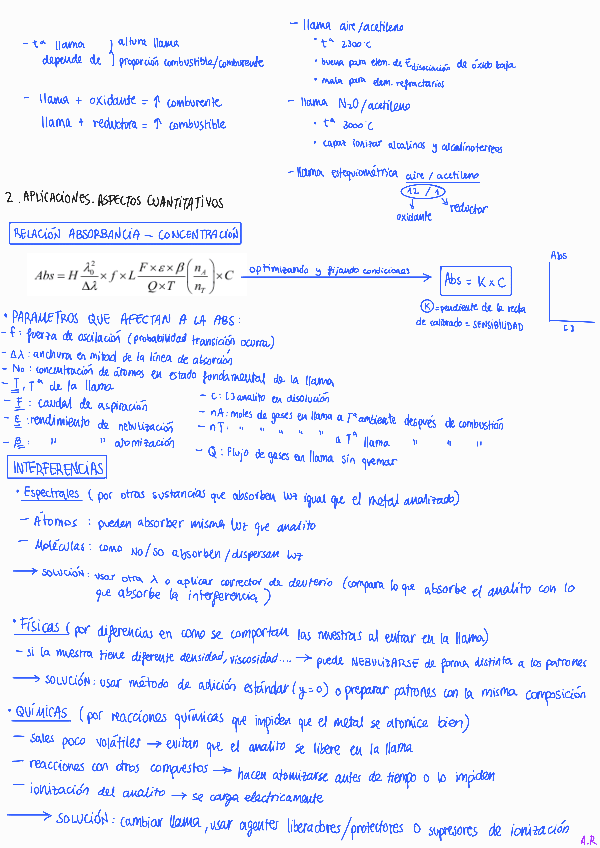 - tª llama depende de } altura llama
proporción combustible/comburente
- llama + oxidante = ↑ comburente
llama + reductora = ↑ combustible
- llama aire/acetileno
• tª 2300°C
• buena para elem. de E disociación de óxido baja
• mala para elem. refractarios
- llama N2O/acetileno
• tª 3000°C
• capaz ionizar alcalinos y alcalinotérreos
- llama estequiométrica aire/acetileno
12 / 1
oxidante
reductor
2. APLICACIONES. ASPECTOS CUANTITATIVOS
RELACIÓN ABSORBANCIA - CONCENTRACIÓN
Abs = H λ₀²/Δλ × f × L F × ε × β / Q × T (n_A / n_T) × C
optimizando y fijando condiciones →
Abs = K × C
Abs
[ ]
K = pendiente de la recta
de calibrado = SENSIBILIDAD
• PARAMETROS QUE AFECTAN A LA ABS:
- f: fuerza de oscilación (probabilidad transición ocurra)
- Δλ: anchura en mitad de la línea de absorción
- No: concentración de átomos en estado fundamental de la llama
- T, Tª de la llama
- F: caudal de aspiración
- ε: rendimiento de nebulización
- β: " " atomización
- C: [ ] analito en disolución
- nA: moles de gases en llama a Tª ambiente después de combustión
- nT: " " " " " a Tª llama " " "
- Q: Flujo de gases en llama sin quemar
INTERFERENCIAS
• Espectrales (por otras sustancias que absorben luz igual que el metal analizado)
- Átomos: pueden absorber misma luz que analito
- Moléculas: como NO/SO absorben/dispersan luz
→ SOLUCIÓN: usar otra λ o aplicar corrector de deuterio (compara lo que absorbe el analito con lo
que absorbe la interferencia)
• Físicas (por diferencias en como se comportan las muestras al entrar en la llama)
- si la muestra tiene diferente densidad, viscosidad.... → puede NEBULIZARSE de forma distinta a los patrones
→ SOLUCIÓN: usar método de adición estándar (y=0) o preparar patrones con la misma composición
• QUÍMICAS (por reacciones químicas que impiden que el metal se atomice bien)
- sales poco volátiles → evitan que el analito se libere en la llama
- reacciones con otros compuestos → hacen atomizarse antes de tiempo o lo impiden
- ionización del analito → se carga electricamente
→ SOLUCIÓN: cambiar llama, usar agentes liberadores/protectores o supresores de ionización
A.R